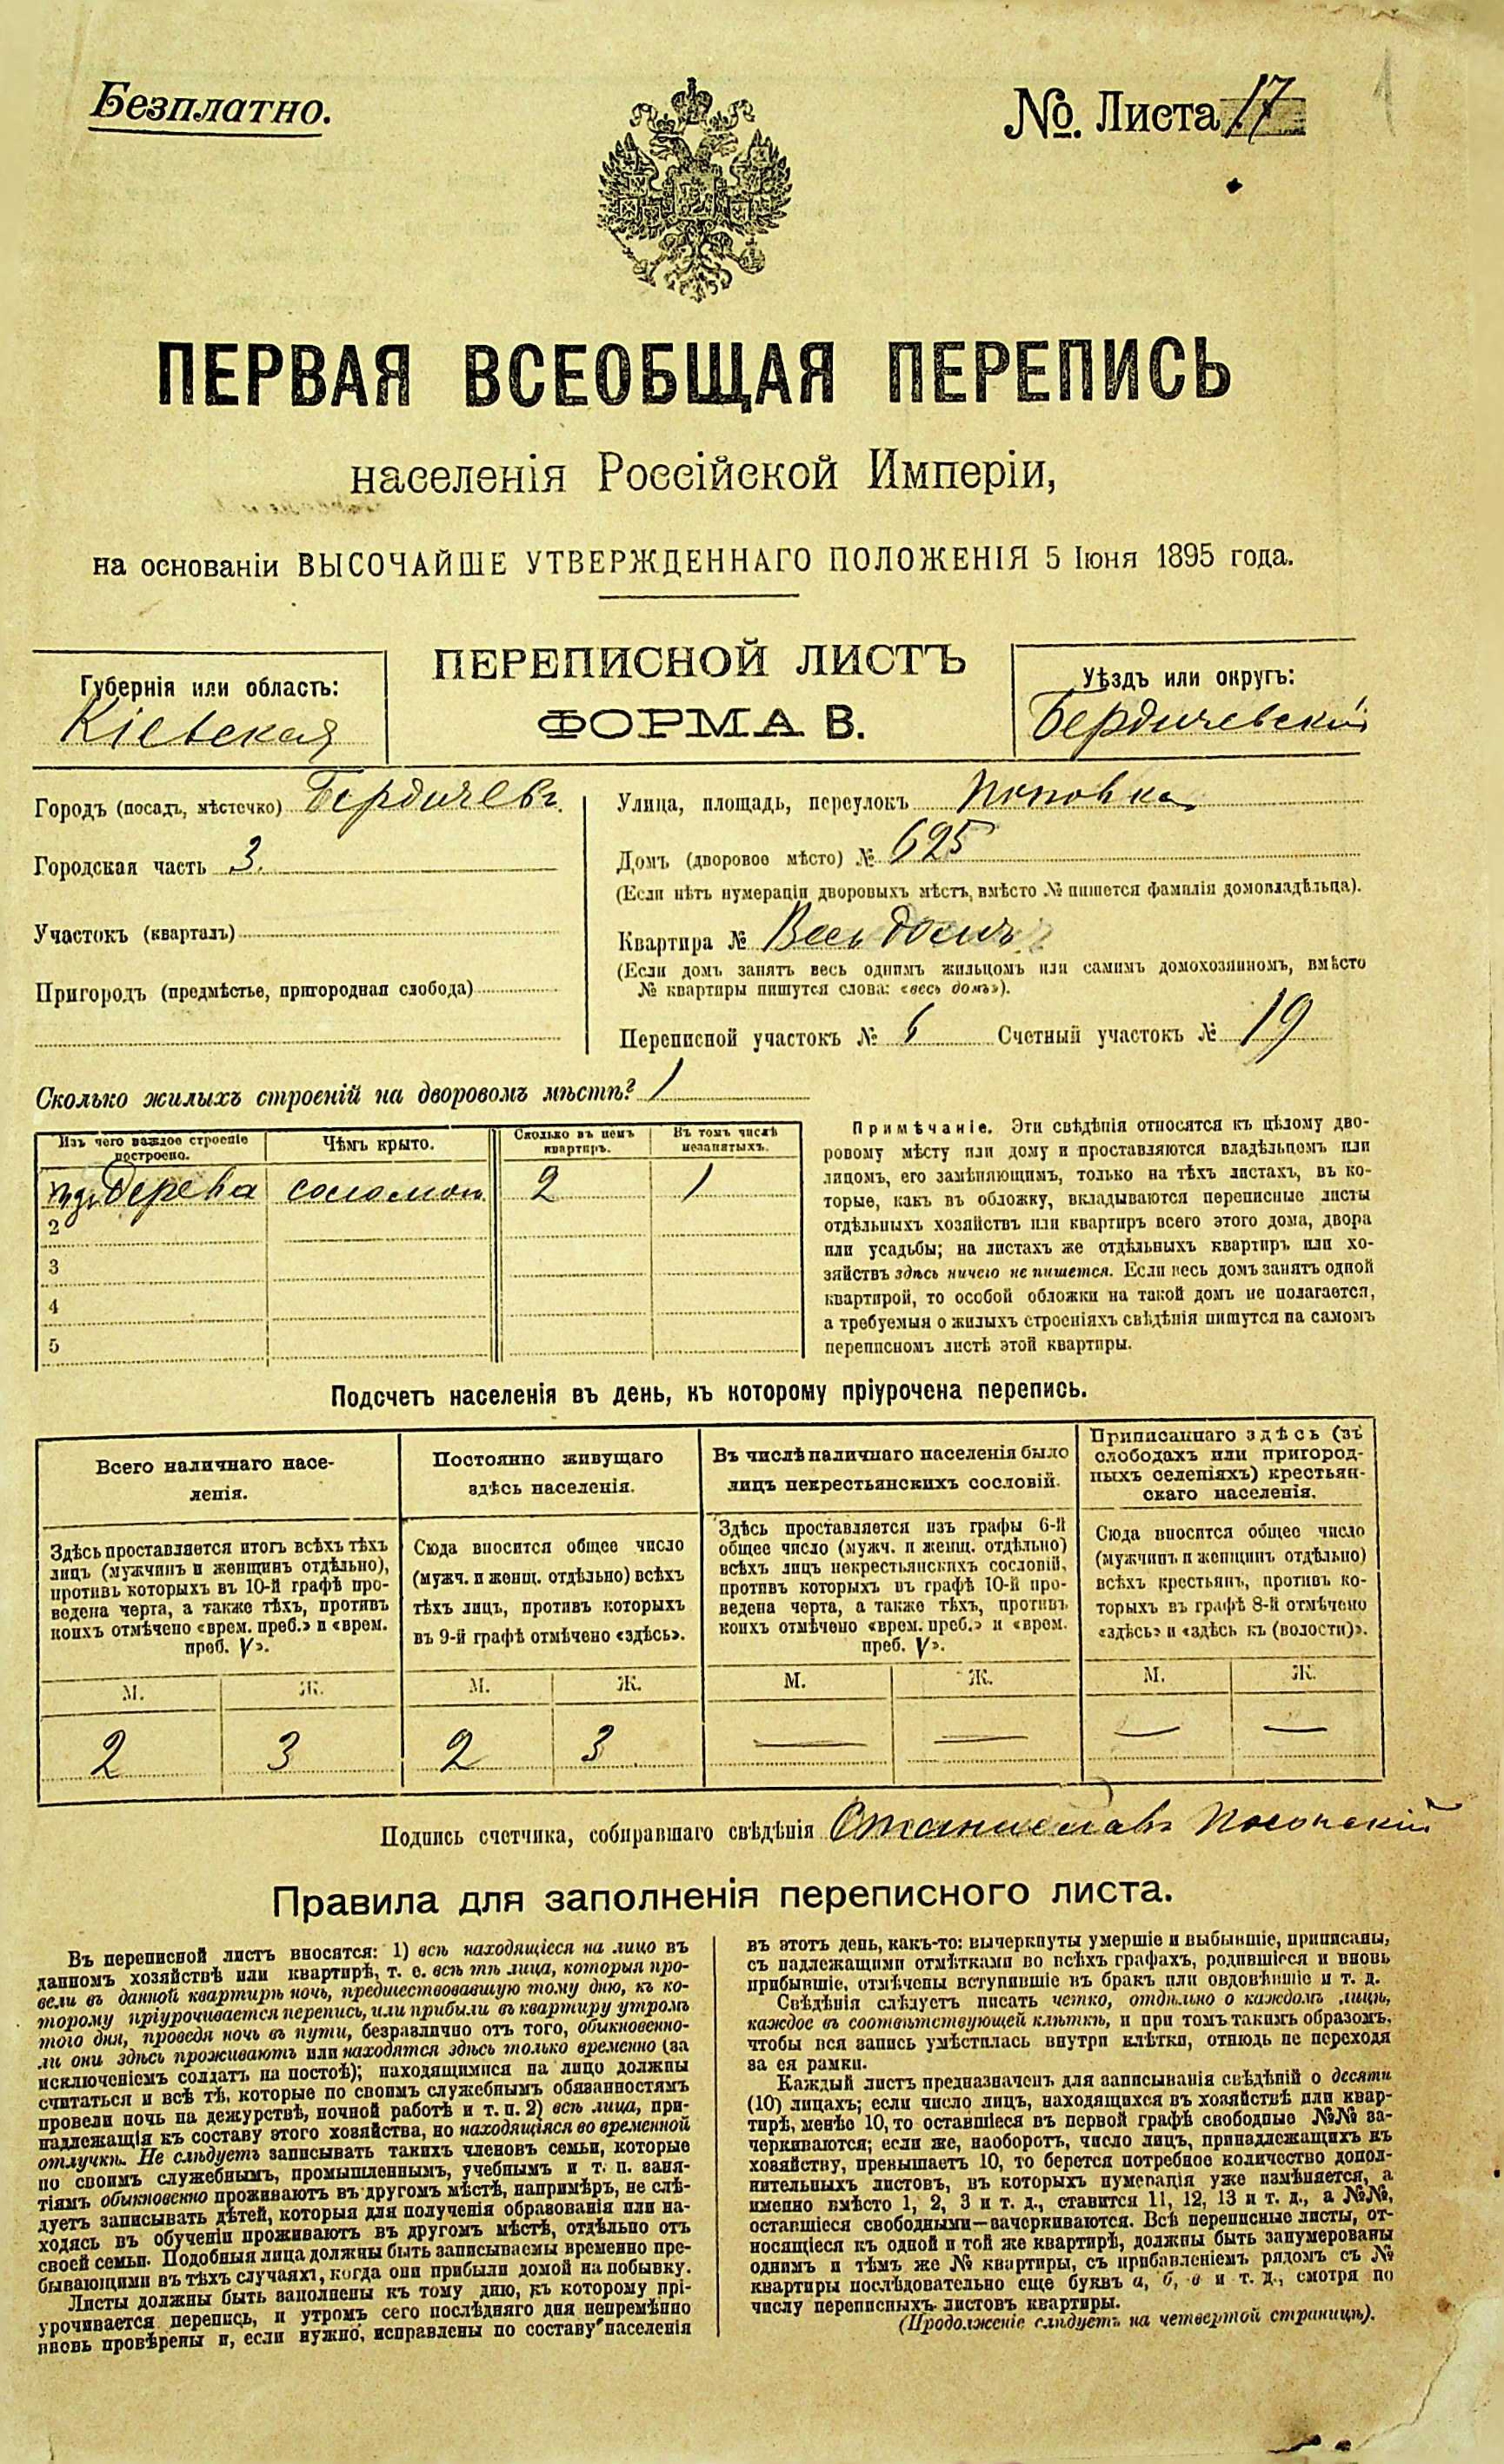 Безплатно.
№ Листа 17
ПЕРВАЯ ВСЕОБЩАЯ ПЕРЕПИСЬ
населенія Россійской Имперіи,
на основаніи ВЫСОЧАЙШЕ УТВЕРЖДЕННАГО ПОЛОЖЕНІЯ 5 Іюня 1895 года.
Губернія или область:
Кіевская
ПЕРЕПИСНОЙ ЛИСТЪ
ФОРМА В.
Уѣздъ или округъ:
Бердичевскій
Городъ (посадъ, мѣстечко) Бердичевъ
Городская часть 3.
Участокъ (кварталъ)
Пригородъ (предмѣстье, пригородная слобода)
Улица, площадь, переулокъ Поповка
Домъ (дворовое мѣсто) № 625
(Если нѣтъ нумераціи дворовыхъ мѣстъ, вмѣсто № пишется фамилія домовладѣльца).
Квартира № Весь домъ
(Если домъ занятъ весь однимъ жильцомъ или самимъ домохозяиномъ, вмѣсто
№ квартиры пишутся слова: «весь домъ»).
Переписной участокъ № 6 Счетный участокъ № 19
Сколько жилыхъ строеній на дворовомъ мѣстѣ? 1
Изъ чего каждое строеніе
построено.
Чѣмъ крыто.
Сколько въ немъ
квартиръ.
Въ томъ числѣ
незанятыхъ.
изъ дерева соломой 2 1
2
3
4
5
Примѣчаніе. Эти свѣдѣнія относятся къ цѣлому дво-
ровому мѣсту или дому и проставляются владѣльцомъ или
лицомъ, его замѣняющимъ, только на тѣхъ листахъ, въ ко-
торые, какъ въ обложку, вкладываются переписные листы
отдѣльныхъ хозяйствъ или квартиръ всего этого дома, двора
или усадьбы; на листахъ же отдѣльныхъ квартиръ или хо-
зяйствъ здѣсь ничего не пишется. Если весь домъ занятъ одной
квартирой, то особой обложки на такой домъ не полагается,
а требуемыя о жилыхъ строеніяхъ свѣдѣнія пишутся на самомъ
переписномъ листѣ этой квартиры.
Подсчетъ населенія въ день, къ которому пріурочена перепись.
Всего наличнаго насе-
ленія.
Постоянно живущаго
здѣсь населенія.
Въ числѣ наличнаго населенія было
лицъ некрестьянскихъ сословій.
Приписаннаго здѣсь (въ
слободахъ или пригород-
ныхъ селеніяхъ) крестьян-
скаго населенія.
Здѣсь проставляется итогъ всѣхъ тѣхъ
лицъ (мужчинъ и женщинъ отдѣльно),
противъ которыхъ въ 10-й графѣ про-
ведена черта, а также тѣхъ, противъ
коихъ отмѣчено «врем. преб.» и «врем.
преб. V».
Сюда вносится общее число
(мужч. и женщ. отдѣльно) всѣхъ
тѣхъ лицъ, противъ которыхъ
въ 9-й графѣ отмѣчено «здѣсь».
Здѣсь проставляется изъ графы 6-й
общее число (мужч. и женщ. отдѣльно)
всѣхъ лицъ некрестьянскихъ сословій,
противъ которыхъ въ графѣ 10-й про-
ведена черта, а также тѣхъ, противъ
коихъ отмѣчено «врем. преб.» и «врем.
преб. V».
Сюда вносится общее число
(мужчинъ и женщинъ отдѣльно)
всѣхъ крестьянъ, противъ ко-
торыхъ въ графѣ 8-й отмѣчено
«здѣсь» и «здѣсь къ (волости)».
М. Ж. М. Ж. М. Ж. М. Ж.
2 3 2 3 — — — —
Подпись счетчика, собиравшаго свѣдѣнія Станиславъ
Правила для заполненія переписного листа.
Въ переписной листъ вносятся: 1) всѣ находящіеся на лицо въ
данномъ хозяйствѣ или квартирѣ, т. е. всѣ тѣ лица, которыя про-
вели въ данной квартирѣ ночь, предшествовавшую тому дню, къ ко-
торому пріурочивается перепись, или прибыли въ квартиру утромъ
того дня, проведя ночь въ пути, безразлично отъ того, обыкновенно-
ли они здѣсь проживаютъ или находятся здѣсь только временно (за
исключеніемъ солдатъ на постоѣ); находящимися на лицо должны
считаться и всѣ тѣ, которые по своимъ служебнымъ обязанностямъ
провели ночь на дежурствѣ, ночной работѣ и т. п. 2) всѣ лица, при-
надлежащія къ составу этого хозяйства, но находящіяся во временной
отлучкѣ. Не слѣдуетъ записывать такихъ членовъ семьи, которые
по своимъ служебнымъ, промышленнымъ, учебнымъ и т. п. заня-
тіямъ обыкновенно проживаютъ въ другомъ мѣстѣ, напримѣръ, не слѣ-
дуетъ записывать дѣтей, которыя для полученія образованія или на-
ходясь въ обученіи проживаютъ въ другомъ мѣстѣ, отдѣльно отъ
своей семьи. Подобныя лица должны быть записываемы временно пре-
бывающими въ тѣхъ случаяхъ, когда они прибыли домой на побывку.
Листы должны быть заполнены къ тому дню, къ которому прі-
урочивается перепись, и утромъ сего послѣдняго дня непремѣнно
вновь провѣрены и, если нужно, исправлены по составу населенія
въ этотъ день, какъ-то: вычеркнуты умершіе и выбывшіе, приписаны,
съ надлежащими отмѣтками во всѣхъ графахъ, родившіеся и вновь
прибывшіе, отмѣчены вступившіе въ бракъ или овдовѣвшіе и т. д.
Свѣдѣнія слѣдуетъ писать четко, отдѣльно о каждомъ лицѣ,
каждое въ соотвѣтствующей клѣткѣ, и при томъ такимъ образомъ,
чтобы вся запись умѣстилась внутри клѣтки, отнюдь не переходя
за ея рамки.
Каждый листъ предназначенъ для записыванія свѣдѣній о десяти
(10) лицахъ; если число лицъ, находящихся въ хозяйствѣ или квар-
тирѣ, менѣе 10, то оставшіеся въ первой графѣ свободные №№ за-
черкиваются; если же, наоборотъ, число лицъ, принадлежащихъ къ
хозяйству, превышаетъ 10, то берется потребное количество допол-
нительныхъ листовъ, въ которыхъ нумерація уже измѣняется, а
именно вмѣсто 1, 2, 3 и т. д., ставится 11, 12, 13 и т. д., а №№,
оставшіеся свободными—зачеркиваются. Всѣ переписные листы, от-
носящіеся къ одной и той же квартирѣ, должны быть занумерованы
однимъ и тѣмъ же № квартиры, съ прибавленіемъ рядомъ съ №
квартиры послѣдовательно еще буквъ а, б, в и т. д., смотря по
числу переписныхъ листовъ квартиры.
(Продолженіе слѣдуетъ на четвертой страницѣ).